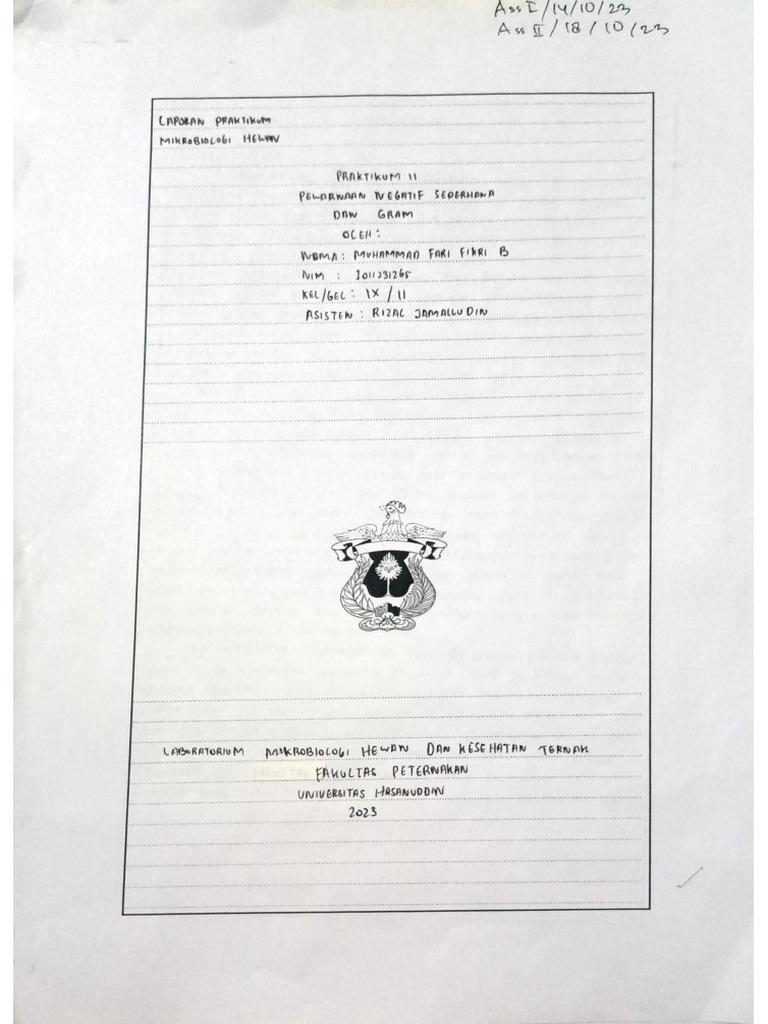 Ass I / 14/10/23
Ass II / 18/10/23
LAPORAN PRAKTIKUM
MIKROBIOLOGI HEWAN
PRAKTIKUM II
PEWARNAAN NEGATIF SEDERHANA
DAN GRAM
OLEH :
NAMA : MUHAMMAD FARI FIKRI B
NIM : I011231265
KEL/GEL : IX / II
ASISTEN : RIZAL JAMALLUDIN
LABORATORIUM MIKROBIOLOGI HEWAN DAN KESEHATAN TERNAK
FAKULTAS PETERNAKAN
UNIVERSITAS HASANUDDIN
2023